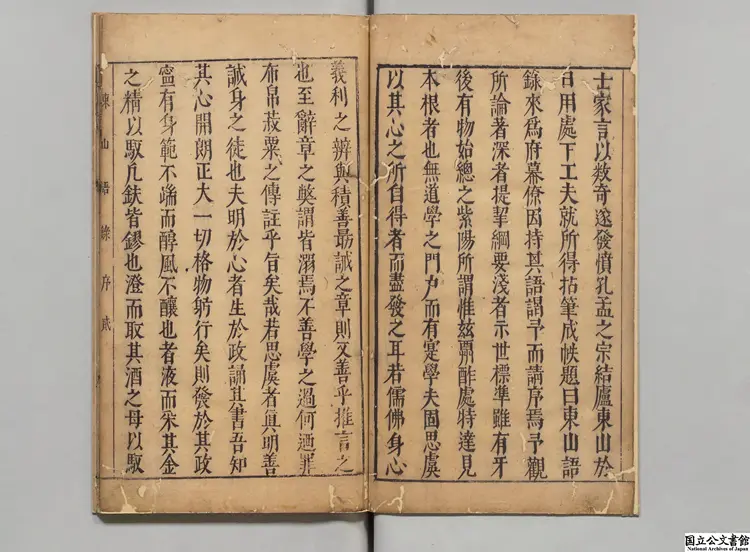 士家言以数奇遂發憤孔孟之宗結廬東山於
日用處下工夫就所得拈筆成帙題曰東山語
錄來爲府幕僚因持其語謁予而請序焉予觀
所論著深者提挈綱要淺者示世標準雖有牙
後有物始總之紫陽所謂惟玆酬酢處特達見
本根者也無道學之門户而有寔學夫固思虞
以其心之所自得者而盡發之耳若儒佛身心
義利之辨與積善勗誡之章則又善乎推言之
也至辭章之獘謂皆溺焉不善學之過何迺罪
布帛菽粟之傳註乎旨矣哉若思虞者眞明善
誠身之徒也夫明於心者生於政誦其書吾知
其心開朗正大一切格物躬行矣則發於其政
寧有身範不端而醇風不釀也者液而采其金
之精以馭凡鈇皆鏐也澄而取其酒之母以馭
東山語錄序
貳
国立公文書館
National Archives of Japan